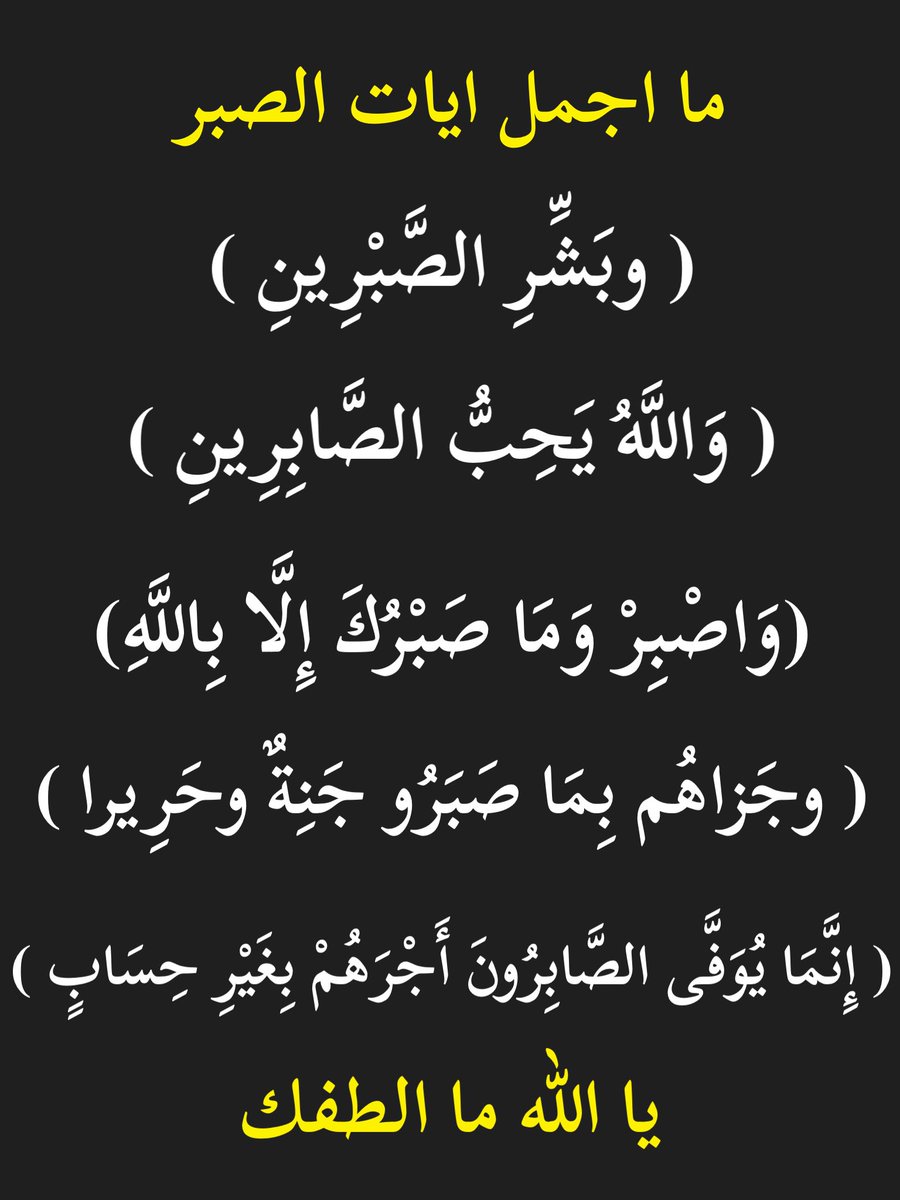 ما اجمل ايات الصبر
( وبَشِّرِ الصَّبْرِينِ )
( وَاللَّهُ يَحِبُّ الصَّابِرِينِ )
(وَاصْبِرْ وَمَا صَبْرُكَ إِلَّا بِاللَّهِ)
( وجَزاهُم بِمَا صَبَرُو جَنِةٌ وحَرِيرا )
( إِنَّمَا يُوَفَّى الصَّابِرُونَ أَجْرَهُمْ بِغَيْرِ حِسَابٍ )
يا الله ما الطفك